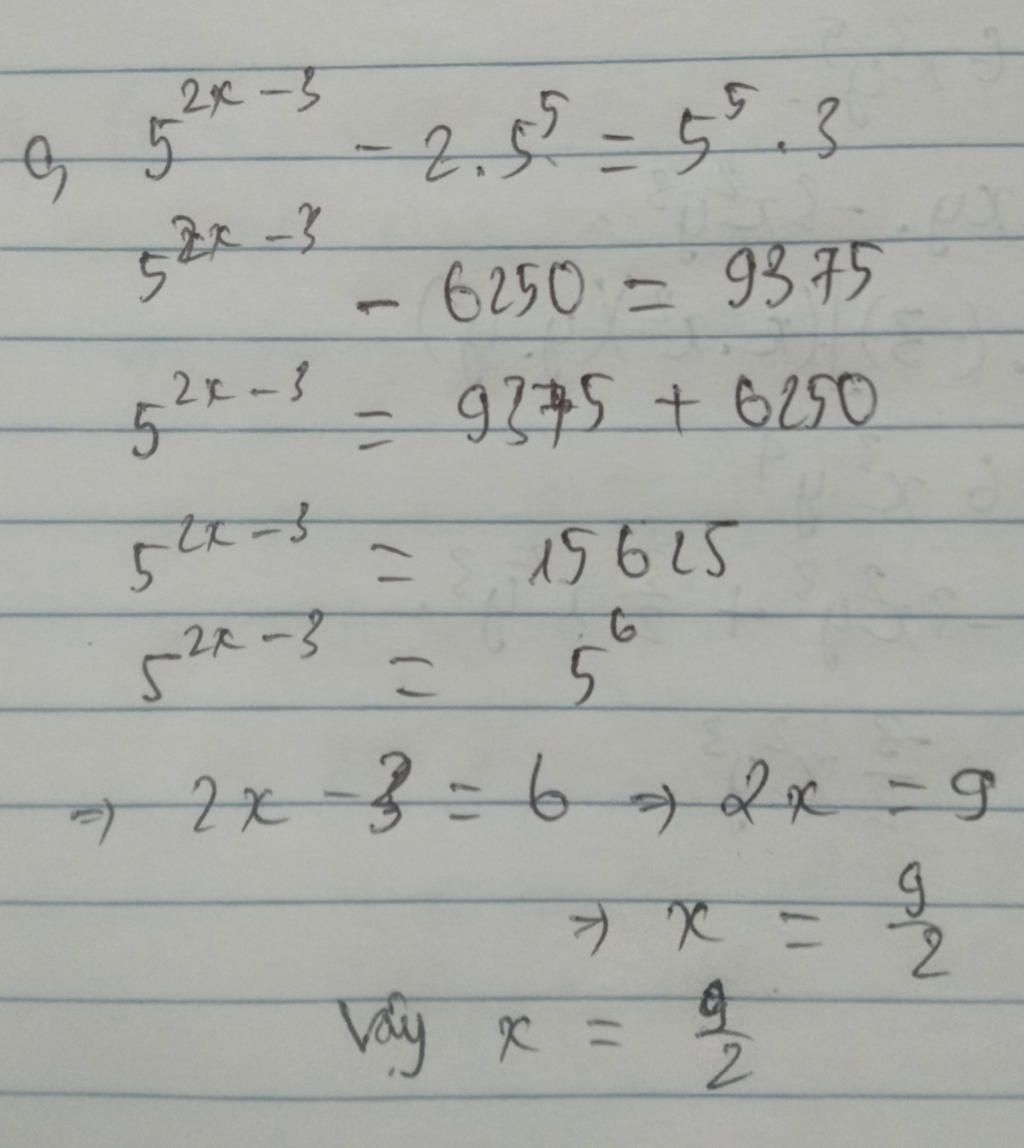 9, 5^{2x-3} - 2.5^5 = 5^5 . 3
5^{2x-3} - 6250 = 9375
5^{2x-3} = 9375 + 6250
5^{2x-3} = 15625
5^{2x-3} = 5^6
⇒ 2x - 3 = 6 ⇒ 2x = 9
⇒ x = 9/2
Vậy x = 9/2